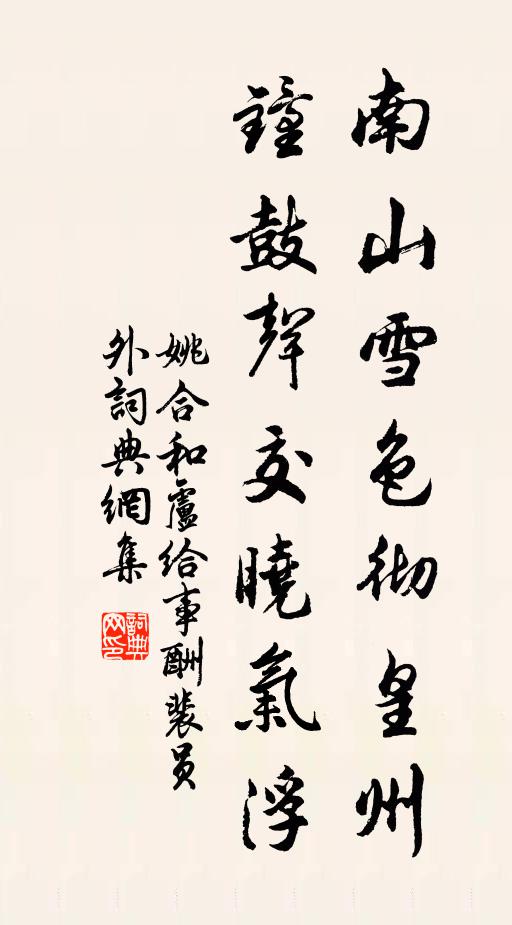 南山雪色彻皇州
鐘鼓聲交曉氣浮
姚合和盧给事酬裴员
外詞典網集
詞典网印